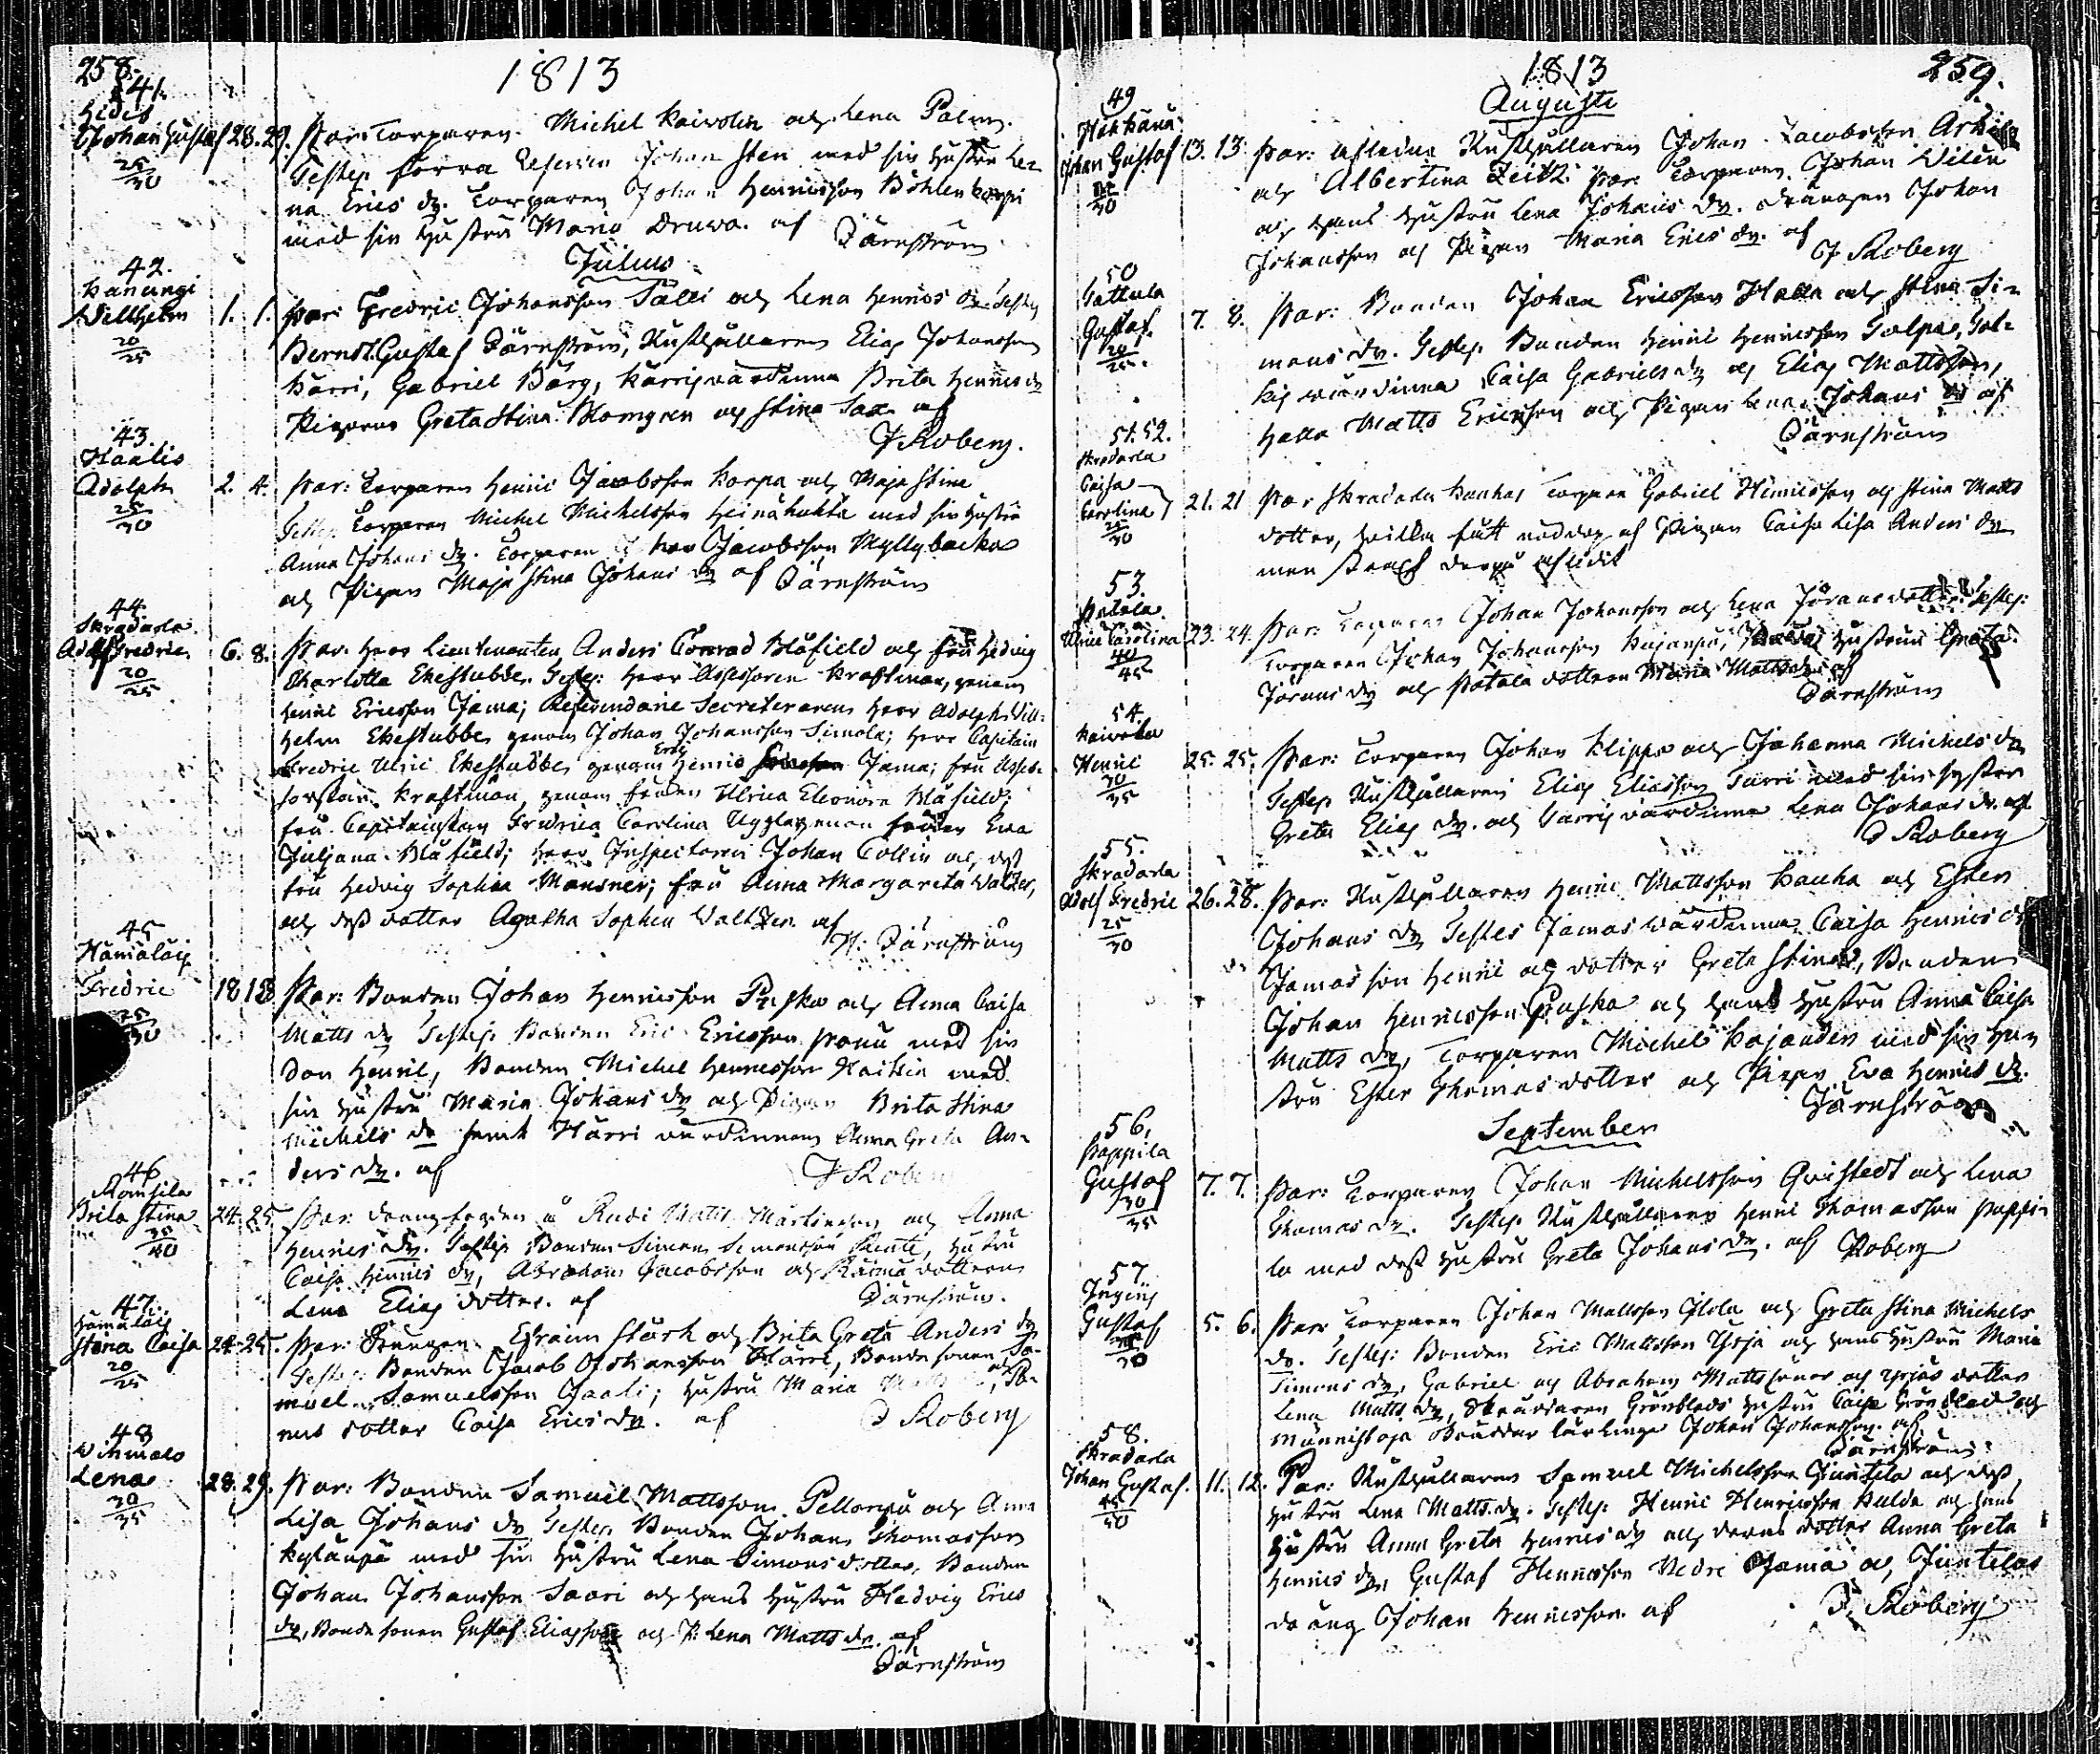 258.
1813
41.
Hedis
Johan Gustaf 28. 29. Par: Torparen Michel Kaivolin och Lena Palm.
25/30
Testes förra Johan Sten med sin hustru Le-
na Erics dr. Torparen Johan Henricsson
med sin hustru Maria Druva. af Järnström
Julius
42.
Kanungi
Willhelm 1. 1. Par: Fredric Johansson Sälli och Lena Henrics dr Testes
20/25
Berndt Gustaf Järnström, Rusthållaren Elias Johansson
Härri, Gabriel Bärg, Härris värdinna Brita Henrics dr
Pigorna Greta Stina Blomgren och Stina Sax af
J Roberg.
43.
Haalis
Adolph 2. 4. Par: Torparen Henric Jacobsson Korpa och Maja Stina
25/30
Testes Torparen Michel Michelsson Heinähukta med sin hustru
Anna Johans dr. Torparen Jacobsson Myllybacka
och Pigan Maja Stina Johans dr af Järnström
44.
Skradarla
Adolf Fredric 6. 8. Par: Herr Lieutenanten Anders Conrad Blåfield och fru Hedvig
20/25
Charlotta Ekestubbe. Testes: Herr Assessoren Kraftman, genom
Henric Ericsson Jama; Referendarie Secreteraren Herr Adolph Will-
helm Ekestubbe genom Johan Johansson Simola; Herr Capitain
Fredric Ulric Ekestubbe, genom Henric Erics Jama; fru Asses-
sorskan Kraftman genom fröken Ulrica Eleonora Blåfield;
fru Capitainskan Fredrica Carolina Uggla genom fröken Eva
Juljana Blåfield; Herr Inspectoren Johan Collin och dess
fru Hedvig Sophia Mansner; fru Anna Margareta Walter,
och dess dotter Agatha Sophia Walter af
H: Järnström
45
Hämäläis
Fredric 18 18 Par: Bonden Johan Henricsson Puska och Anna Caisa
25/30
Matts dr Testes Bonden Eric Ericsson Pränu med sin
son Henric, Bonden Michel Henricsson Kaitsia med
sin hustru Maria Johans dr och Pigan Brita Stina
Michels dr samt Härri värdinnan Anna Greta An-
ders dr. af J Roberg
46
Ronsila
Brita Stina 24. 25. Par: å Rudi Matts Martinsson och Anna
35/40
Henrics dr. Testes Bonden Simon Simonsson, hustru
Caisa Henrics dr, Abraham Jacobsson och dottern
Lena Elias dotter. af Järnström.
47.
Hämäläis
Stina Caisa 24. 25. Par: Drengen Efraim Stark och Brita Greta Anders dr
20/25
Testes: Bonden Jacob Johansson Härri, Bonde sonen Sa-
muel Samuelsson Jaali; hustru Maria
dotter Caisa Erics dr. af J Roberg
48
Wihmalo
Lena 28. 29. Par: Bonden Samuel Mattsson Pellonpä och Anna
30/35
Lisa Johans dr Testes Bonden Johan Thomasson
Kylänpä med sin hustru Lena Simons dotter, Bonden
Johan Johansson Saari och hans hustru Hedvig Erics
dr, Bonde sonen Gustaf Eliasson och P: Lena Matts dr. af
Järnström
1813
259.
Augusti
49
Johan Gustaf 13. 13. Par: Rusthållaren Johan Jacobsson
30
och Albertina Zeitz. Torparen Johan Wilén
och hans hustru Lena Johans dr. Drängen Johan
Johansson och Pigan Maria Erics dr. af
J Roberg
50
Gattula
Gustaf. 7. 8. Par: Bonden Johan Ericsson Halla och Stina Si-
20/25.
mons dr. Testes Bonden Henric Henricsson
värdinna Caisa Gabriels dr och Elias Mattsson,
Halla Matts Ericsson och Pigan Lena Johans dr af
Järnström
51. 52.
Skradarla
Caisa
Carolina 21. 21 Par Skradarla Kauhas Torpare Gabriel Henricsson och Stina Matts
25/30
dotter, hvilka fått nöddop af Pigan Caisa Lisa Anders dr
men strax derpå aflidit
53.
Patala
Ulric Carolina 23. 24. Par: Torparen Johan Johansson och Lena Jörans dotter. Testes:
40/45
Torparen Johan Johansson Kujanpä, hustrun Greta
Jörans dr och Patala dottern Maria Matts dr af
Järnström
54.
Kaivola
Henric 25. 25. Par: Torparen Johan Klippa och Johanna Michels dr
30/35
Testes Rusthållaren Elias Eliasson Sarri med sin syster
Greta Elias dr. och Sarris värdinna Lena Johans dr. af
J Roberg
55.
Skradarla
Adolf Fredric 26. 28. Par: Rusthållaren Henric Mattsson Kauha och Ester
25/30
Johans dr Testes Jamas värdinna Caisa Henrics dr
Jamas son Henric och dotter Greta Stina, Bonden
Johan Henricsson Puska och hans hustru Anna Caisa
Matts dr, Torparen Michel Kajander med sin hu-
stru Ester Thomas dotter och Pigan Eva Henrics dr.
Järnström
September
56.
Pappila
Gustaf 7. 7. Par: Torparen Johan Michelsson Qvistedt och Lena
30/35
Thomas dr. Testes Rusthållaren Henric Thomasson Pappi-
la med dess hustru Greta Johans dr. af Roberg
57
Gustaf 5. 6. Par: Torparen Johan Mattsson Ilola och Greta Stina Michels
30
dr. Testes: Bonden Eric Mattsson Yrjä och hans hustru Maria
Simons dr, Gabriel och Abraham Matts söner och Yrjäs dotter
Lena Matts dr, Skräddaren Grönblads hustru Caisa Grönblad och
Männistojas Skräddar lärlinge Johan Johansson. af
Järnström
58.
Skradarla
Johan Gustaf. 11. 12. Par: Rusthållaren Samuel Michelsson Juntila och dess
45/50
hustru Lena Matts dr. Testes Henric Henricsson Hulda och hans
hustru Anna Greta Henrics dr och deras dotter Anna Greta
Henrics dr, Gustaf Henricsson Nedre Jama och Juntilas
dräng Johan Henricsson af J. Roberg